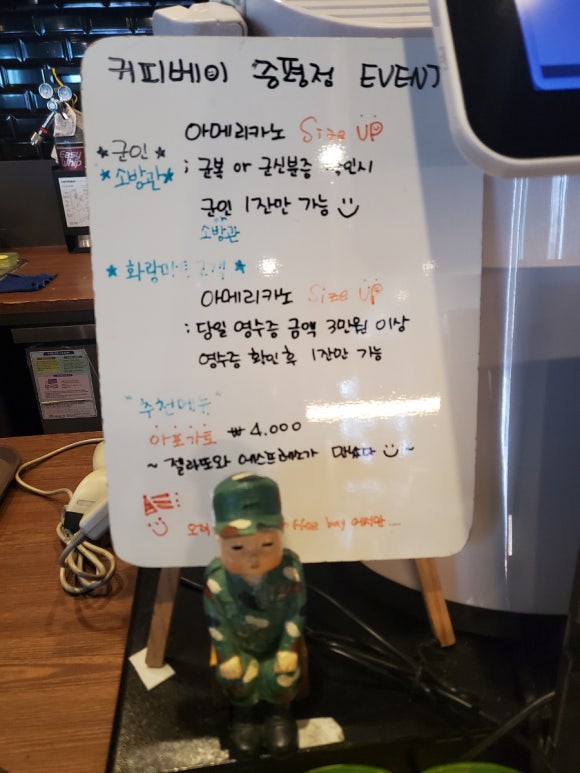 커피베이 증평점 EVENT
아메리카노 Size UP
*군인*
*소방관*
; 군복 or 군신분증 확인시
군인 1잔만 가능
소방관
아메리카노 Size UP
: 당일 영수증 금액 3만원 이상
영수증 확인 후 1잔만 가능
"추천메뉴"
아포가토 ₩4.000
~ 젤라또와 에스프레소가 만났다 ~
coffee bay
Easy
whip